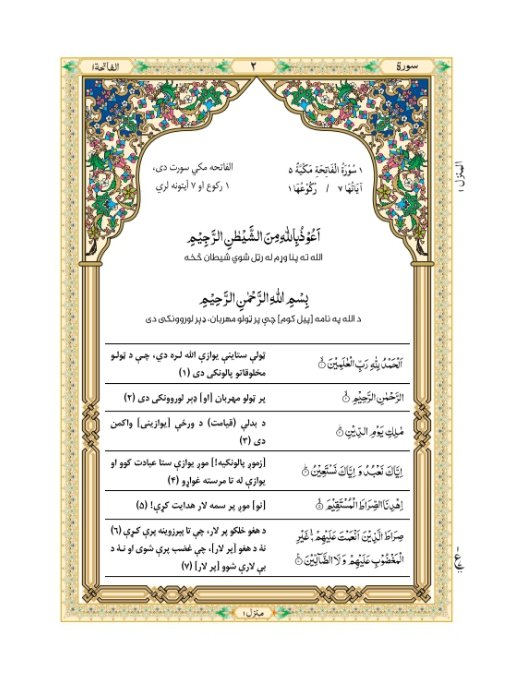 سورة
۲
الفاتحة۱
المنزل ۱
۱ سُوْرَةُ الْفَاتِحَةِ مَكِّيَّةٌ ۵
اٰيَاتُهَا ۷ / رُكُوْعُهَا ۱
الفاتحه مکي سورت دی،
۱ رکوع او ۷ آيتونه لري
اَعُوْذُ بِاللّٰهِ مِنَ الشَّيْطٰنِ الرَّجِيْمِ
الله ته پنا وړم له رټل شوي شيطان څخه
بِسْمِ اللّٰهِ الرَّحْمٰنِ الرَّحِيْمِ
د الله په نامه [پيل کوم] چې پر ټولو مهربان، ډېر لوروونکی دی
اَلْحَمْدُ لِلّٰهِ رَبِّ الْعٰلَمِيْنَ ۝۱
ټولې ستاينې يوازې الله لره دي، چې د ټولو
مخلوقاتو پالونکی دی (۱)
الرَّحْمٰنِ الرَّحِيْمِ ۝۲
پر ټولو مهربان [او] ډېر لوروونکی دی (۲)
مٰلِكِ يَوْمِ الدِّيْنِ ۝۳
د بدلې (قيامت) د ورځې [يوازينی] واکمن
دی (۳)
اِيَّاكَ نَعْبُدُ وَ اِيَّاكَ نَسْتَعِيْنُ ۝۴
[زموږ پالونکيه!] موږ يوازې ستا عبادت کوو او
يوازې له تا مرسته غواړو (۴)
اِهْدِنَا الصِّرَاطَ الْمُسْتَقِيْمَ ۝۵
[نو] موږ پر سمه لار هدايت کړې! (۵)
صِرَاطَ الَّذِيْنَ اَنْعَمْتَ عَلَيْهِمْ ۝۶ غَيْرِ
الْمَغْضُوْبِ عَلَيْهِمْ وَ لَا الضَّآلِّيْنَ ۝۷
د هغو خلکو پر لار، چې تا پېرزوينه پرې کړې (۶)
نۀ د هغو [پر لار]، چې غضب پرې شوی او نۀ د
بې لارې شوو [پر لار] (۷)
منزل۱